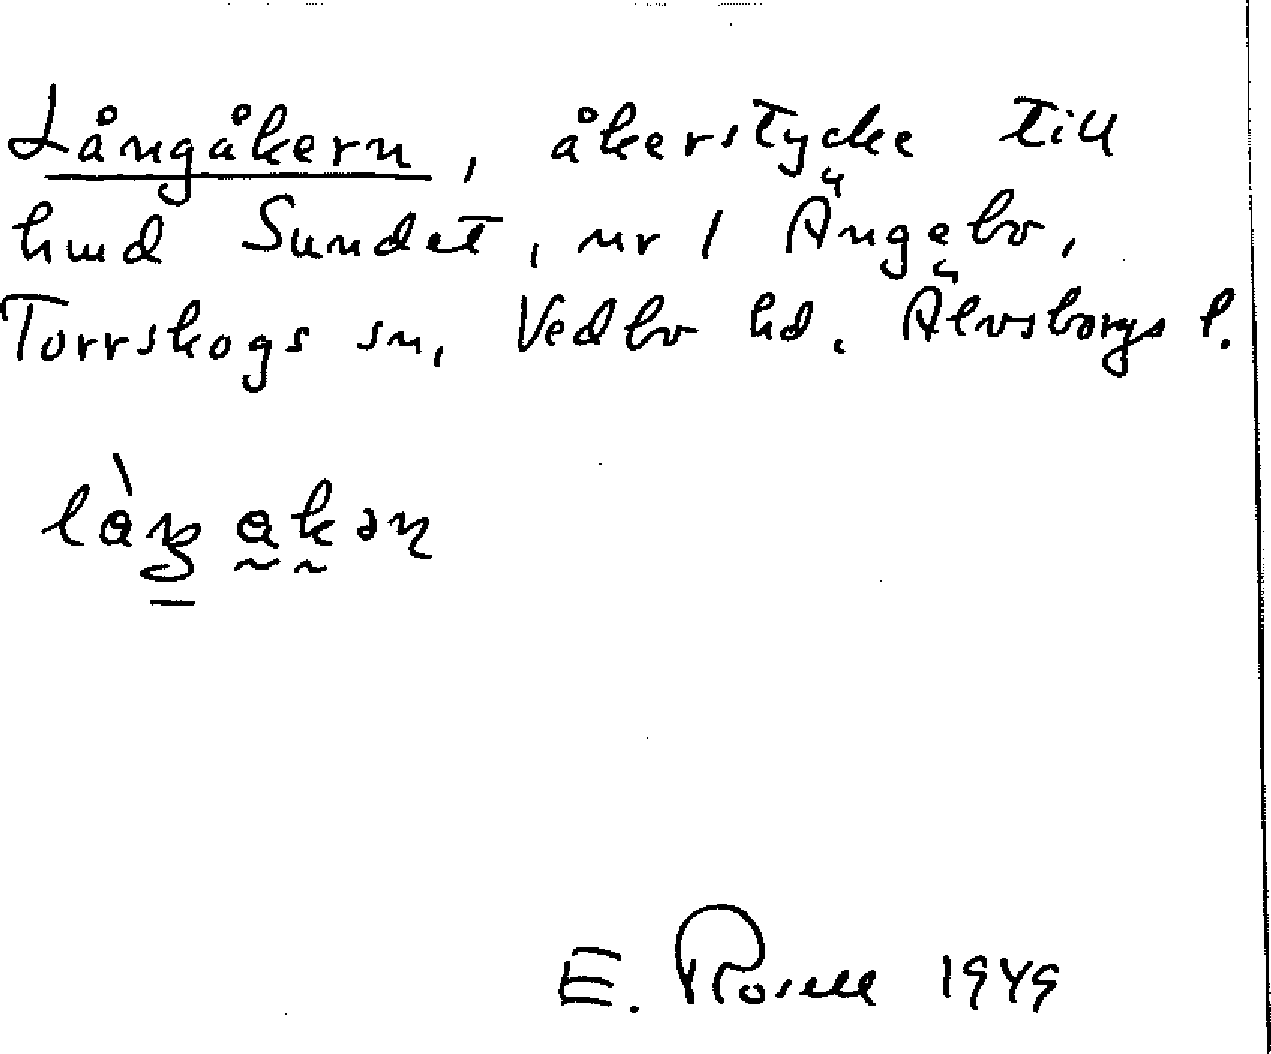 Långåkern, åkerstycke till
hmd Sundet, nr 1 Ängebo,
Torrskogs sn, Vedbo hd. Älvsborgs l.
E. Rosell 1949